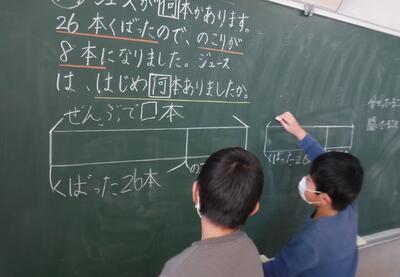 ジュースが何本かあります。
26本くばったので、のこりが
8本になりました。ジュース
は、はじめ何本ありましたか。
ぜんぶで□本
くばった26本
のこ
くばった26